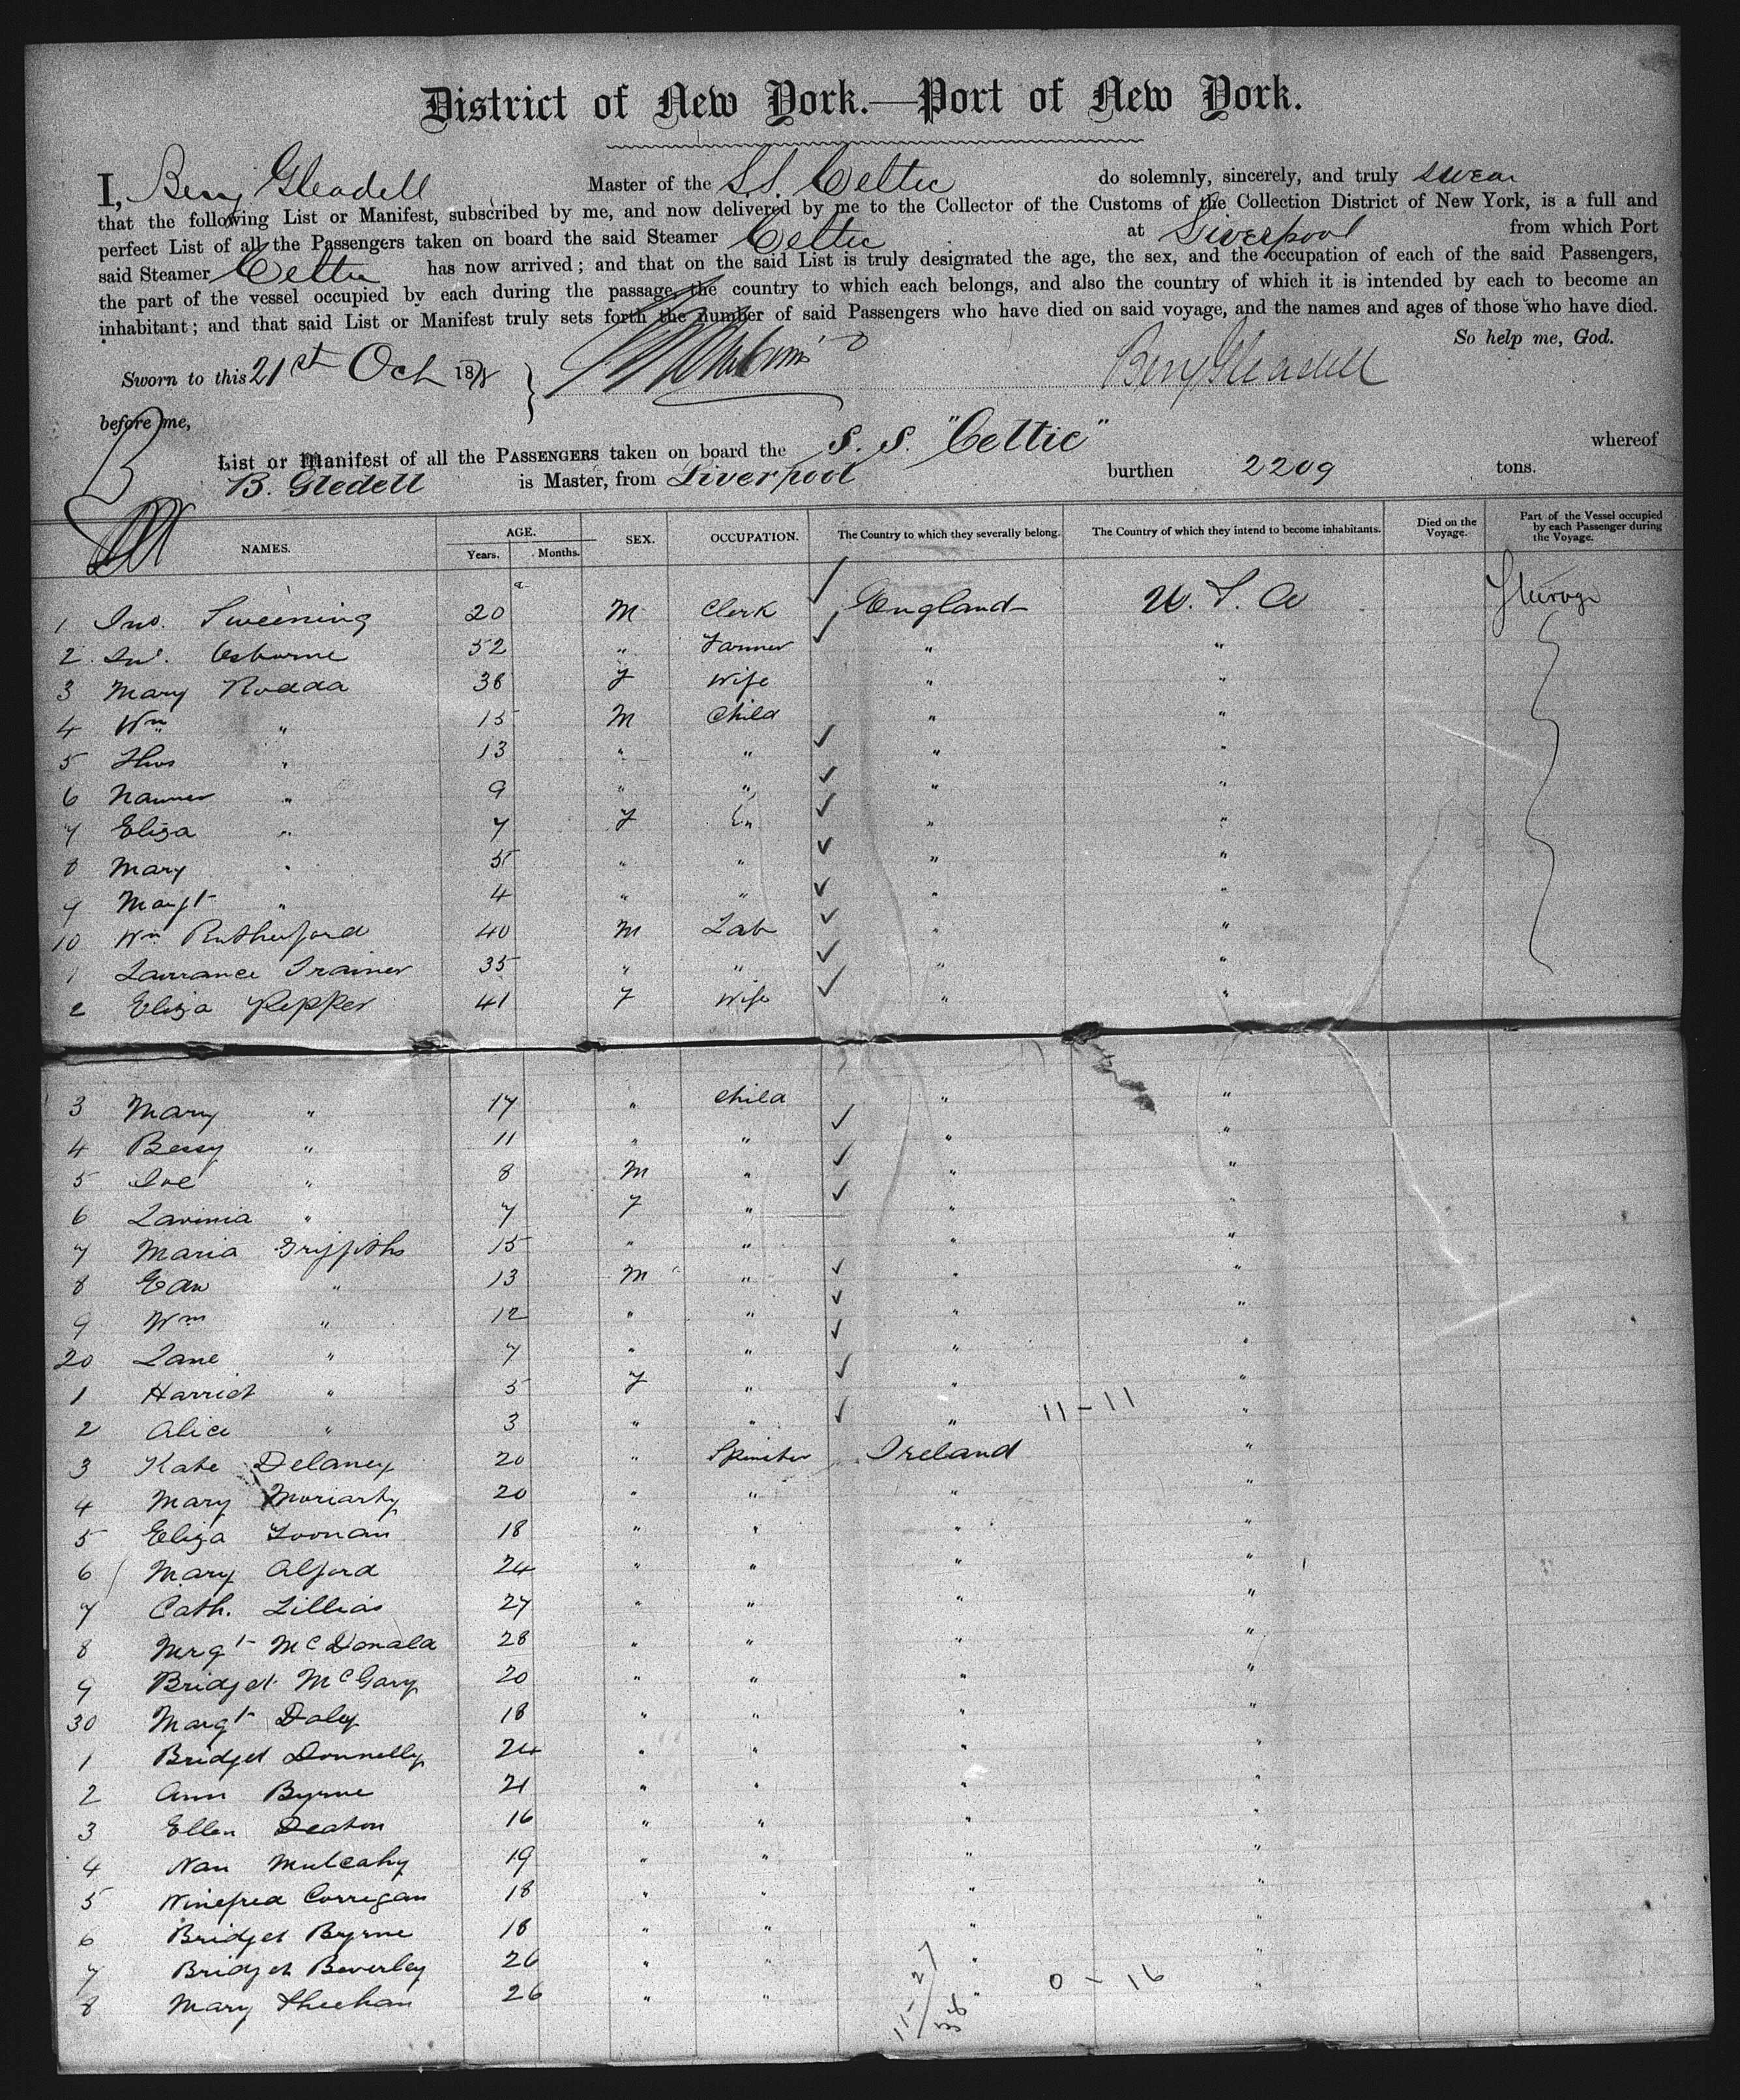 District of New York.—Port of New York.
I, Benj Gleadell Master of the S.S. Celtic do solemnly, sincerely, and truly swear
that the following List or Manifest, subscribed by me, and now delivered by me to the Collector of the Customs of the Collection District of New York, is a full and
perfect List of all the Passengers taken on board the said Steamer Celtic at Liverpool from which Port
said Steamer Celtic has now arrived; and that on the said List is truly designated the age, the sex, and the occupation of each of the said Passengers,
the part of the vessel occupied by each during the passage, the country to which each belongs, and also the country of which it is intended by each to become an
inhabitant; and that said List or Manifest truly sets forth the number of said Passengers who have died on said voyage, and the names and ages of those who have died.
So help me, God.
Sworn to this 21st Oct 1878 Benj Gleadell
before me,
List or Manifest of all the PASSENGERS taken on board the S. S. "Celtic" whereof
B. Gledell is Master, from Liverpool burthen 2209 tons.
NAMES. AGE. Years. Months. SEX. OCCUPATION. The Country to which they severally belong. The Country of which they intend to become inhabitants. Died on the Voyage. Part of the Vessel occupied by each Passenger during the Voyage.
1 Jno. Sweening 20 M Clerk England U.S.A Steerage
2 Jno. Osborne 52 " Farmer " "
3 Mary Rodda 38 F Wife " "
4 Wm " 15 M Child " "
5 Thos " 13 " " " "
6 " 9 " " " "
7 Eliza " 7 F " " "
8 Mary " 5 " " " "
9 Margt " 4 " " " "
10 Wm Rutherford 40 M Lab " "
1 Lawrance Trainer 35 " " " "
2 Eliza Pepper 41 F Wife " "
3 Mary " 17 " Child " "
4 Bessy " 11 " " " "
5 Joe " 8 M " " "
6 Lavinia " 7 F " " "
7 Maria Griffiths 15 " " " "
8 Edw " 13 M " " "
9 Wm " 12 " " " "
20 Jane " 7 " " " "
1 Harriet " 5 F " " "
2 Alice " 3 " " " 11-11 "
3 Kate Delaney 20 " Spinster Ireland "
4 Mary Moriarty 20 " " " "
5 Eliza Noonan 18 " " " "
6 Mary Alford 24 " " " "
7 Cath. Lillias 27 " " " "
8 Mrgt McDonald 28 " " " "
9 Bridget McGary 20 " " " "
30 Margt Daly 18 " " " "
1 Bridget Donnelly 24 " " " "
2 Ann Byrne 21 " " " "
3 Ellen Deaton 16 " " " "
4 Nan Mulcahy 19 " " " "
5 Winefred Corrigan 18 " " " "
6 Bridget Byrne 18 " " " "
7 Bridget Beverley 26 " " " "
8 Mary Sheehan 26 " " " 0-16 "
11-27
38